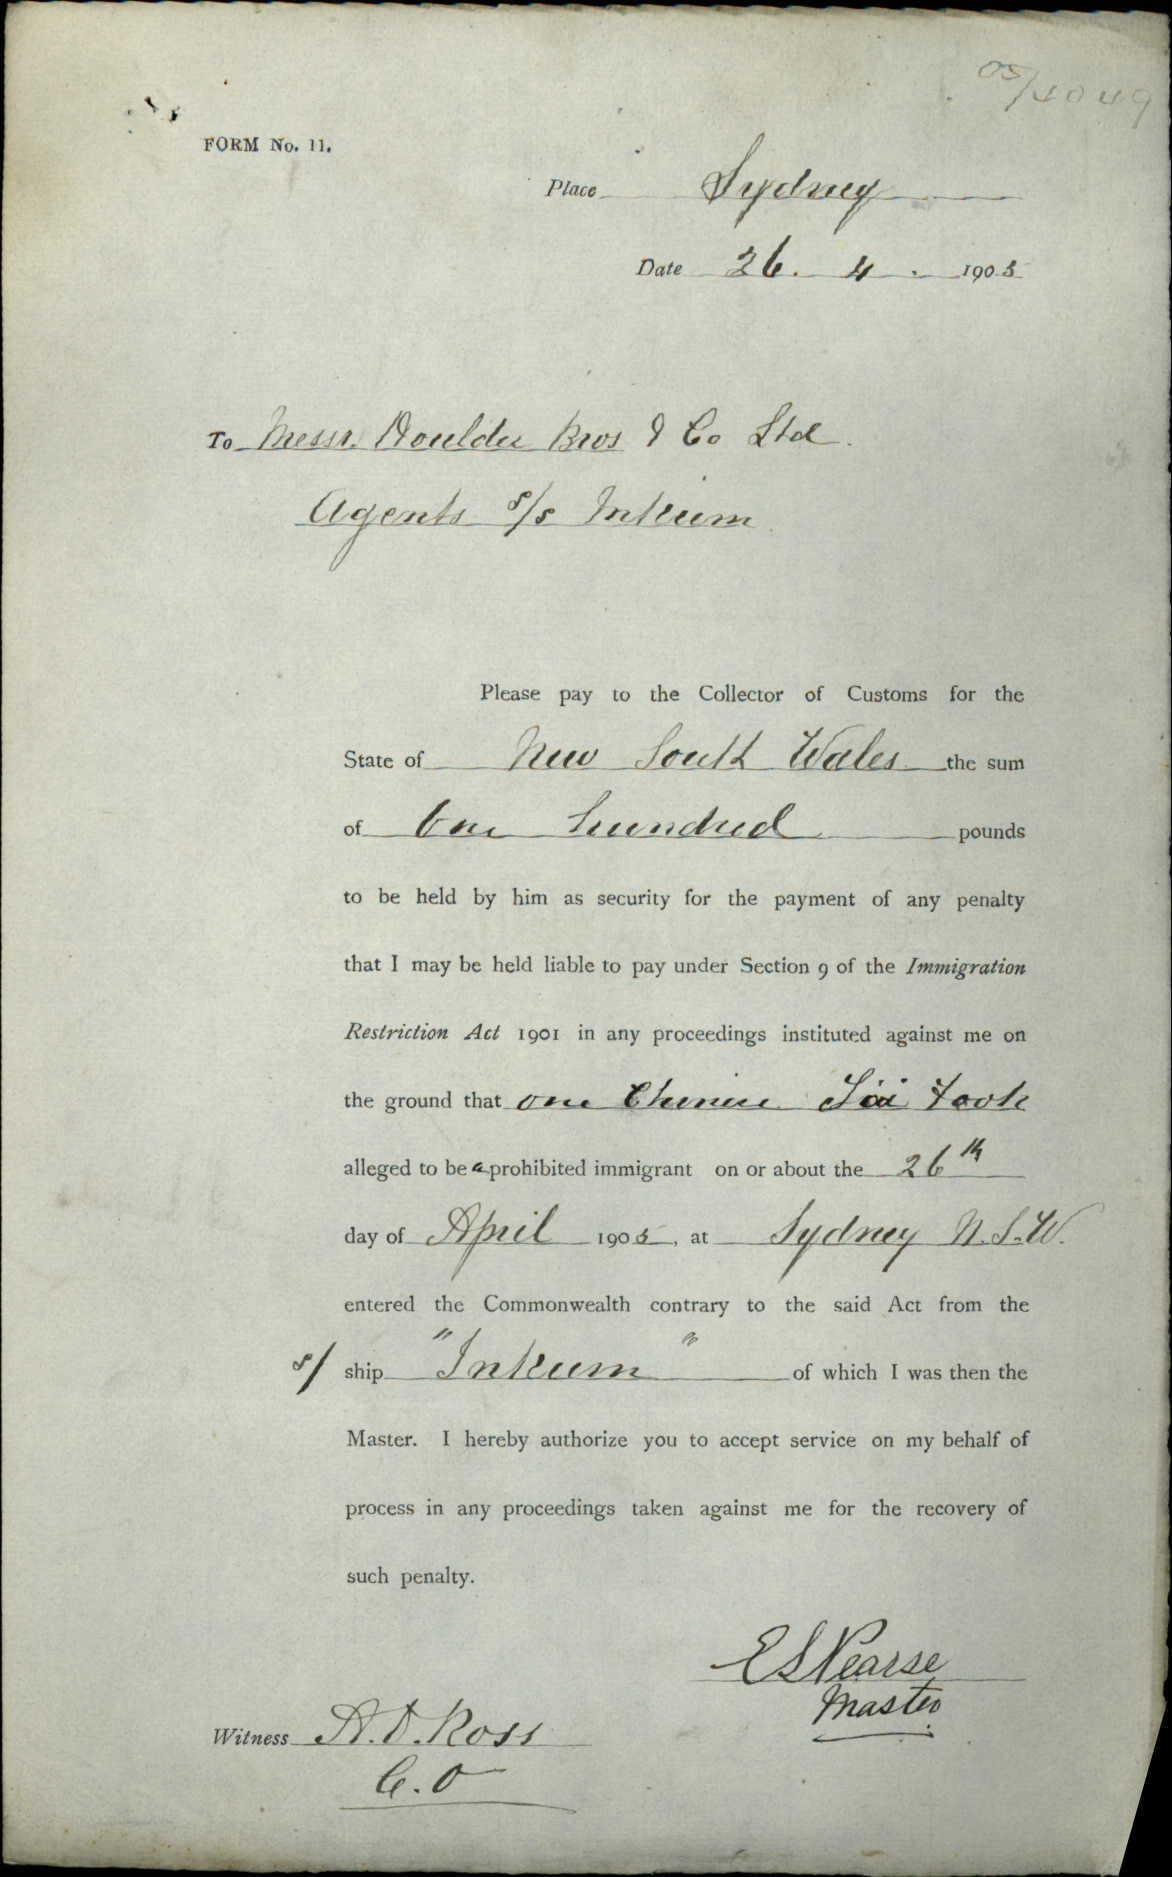 05/4049
FORM No. 11.
Place Sydney
Date 26. 4. 1905
To Messrs. Houlder Bros & Co Ltd.
Agents s/s Inkum
Please pay to the Collector of Customs for the
State of New South Wales the sum
of One hundred pounds
to be held by him as security for the payment of any penalty
that I may be held liable to pay under Section 9 of the Immigration
Restriction Act 1901 in any proceedings instituted against me on
the ground that one Chinese Fook
alleged to be a prohibited immigrant on or about the 26th
day of April 1905, at Sydney N.S.W.
entered the Commonwealth contrary to the said Act from the
s/ ship "Inkum" of which I was then the
Master. I hereby authorize you to accept service on my behalf of
process in any proceedings taken against me for the recovery of
such penalty.
E S Pearse
Master
Witness A. D. Ross
C. O